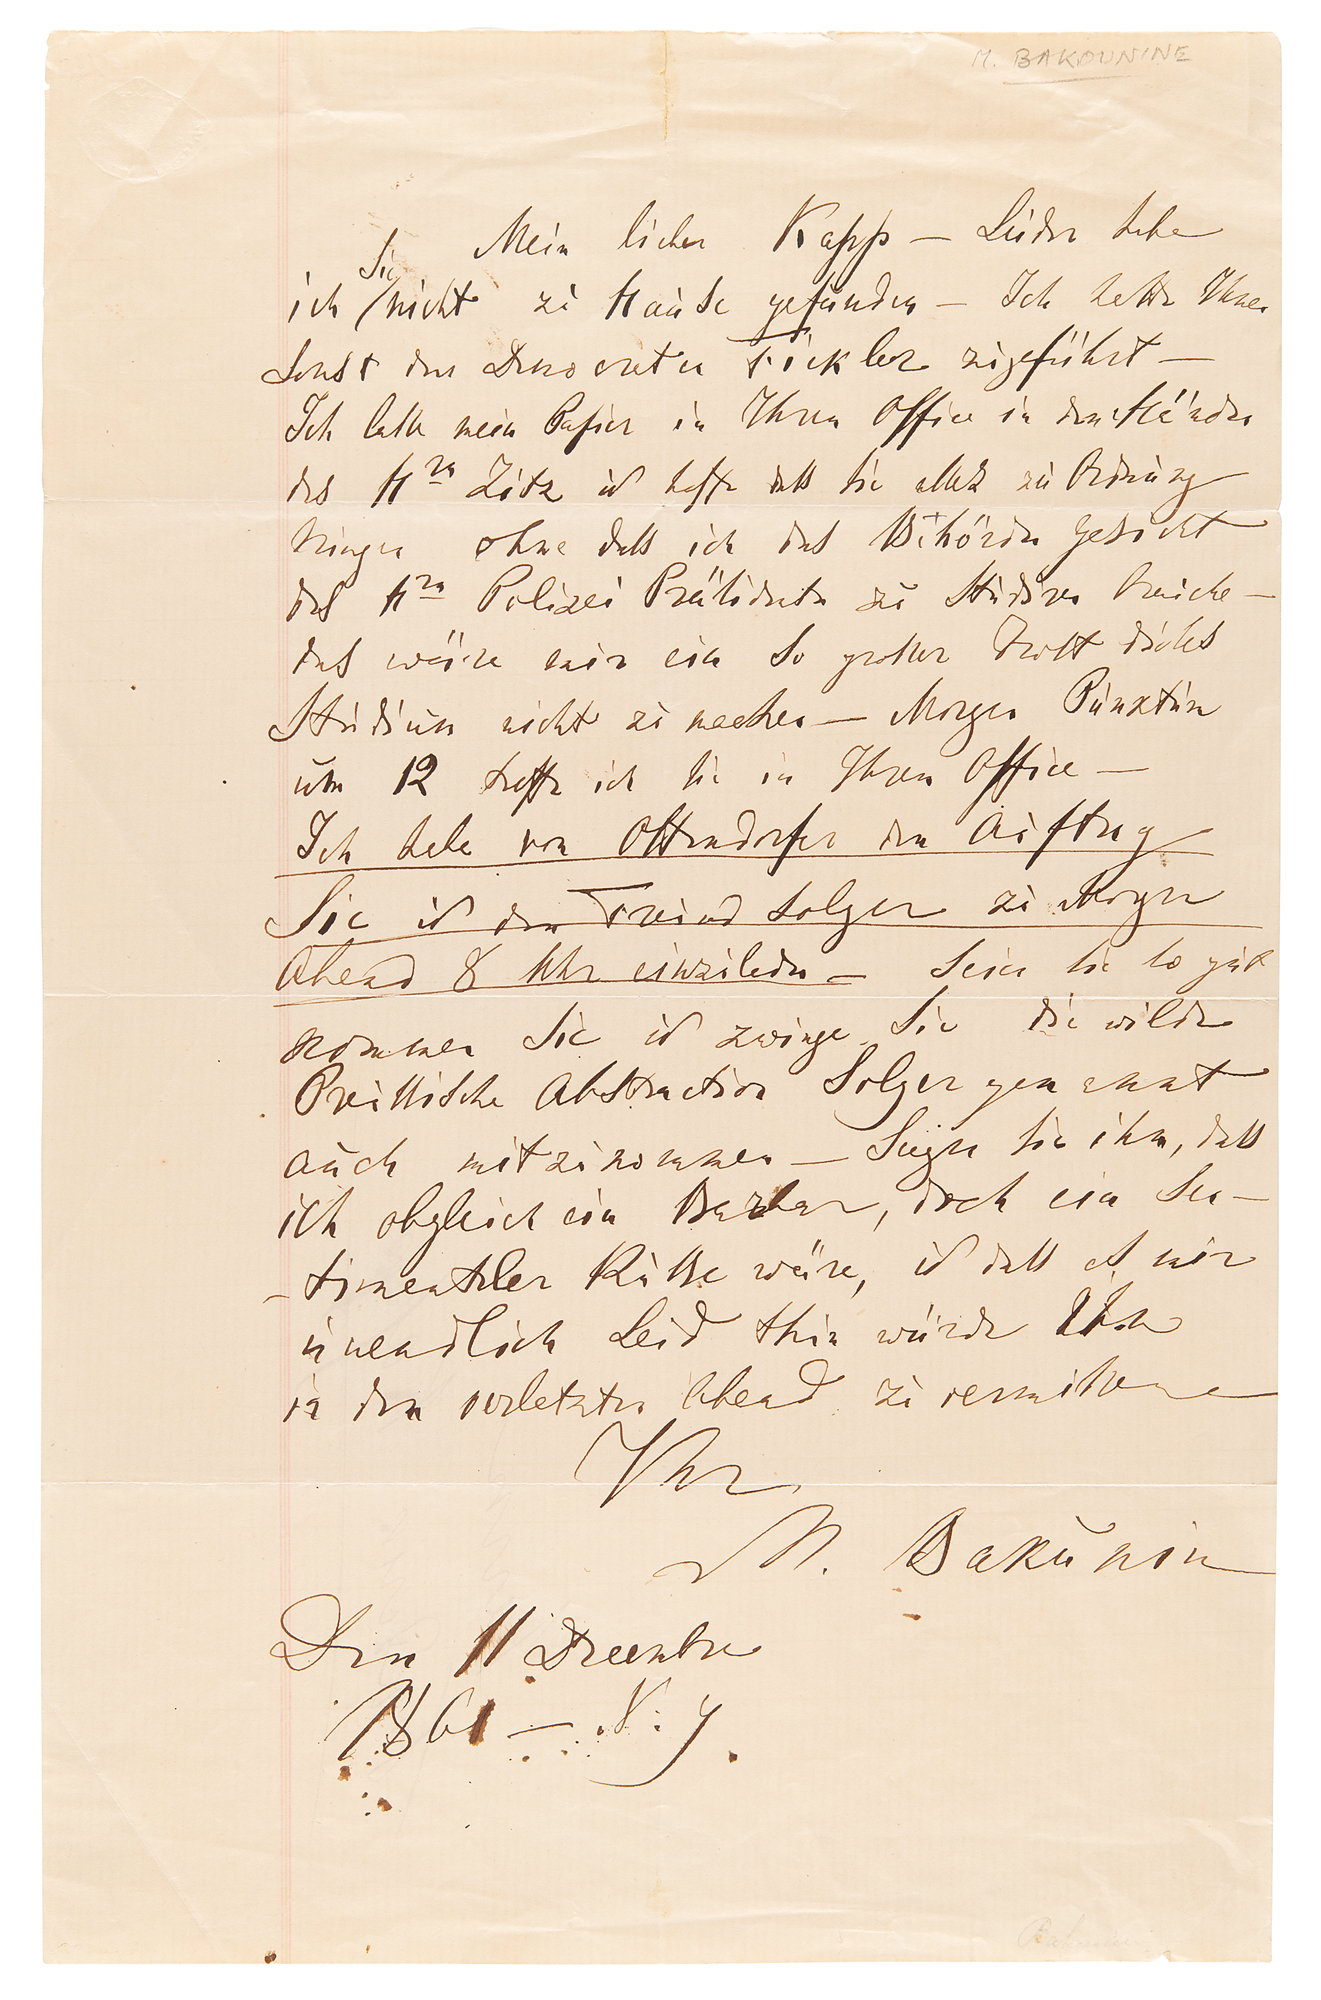 M. BAKOUNINE
Mein lieber Kapp — Leider habe
Sie
ich nicht zu Hause gefunden — Ich hätte Ihnen
sonst den Democraten Fickler zugeführt —
Ich lasse mein Papier in Ihrem Office in den Händen
des Hrn Zitz und hoffe dass Sie alles zu Ordnung
bringen ohne dass ich das Behörden gesicht
des Hrn Polizei Präsidenten zu studiren brauche —
das wäre mir ein so grosser Trost dieses
Studium nicht zu machen — Morgen
um 12 treffe ich Sie in Ihrem Office —
Ich habe von Ottendorfer den Auftrag
Sie und den Freund Solger zu Morgen
Abend 8 Uhr einzuladen — Seien Sie so gut
kommen Sie und zwingen Sie die wilde
Preussische Abstraction Solger genannt
auch mitzukommen — Sagen Sie ihm, dass
ich obgleich ein Barbar, doch ein Sen-
-timentaler Russe wäre, und dass es mir
unendlich Leid thun würde Ihn
in dem vorletzten Abend zu vermissen
Ihr
M. Bakunin
Den 11 December
1861 — N. Y